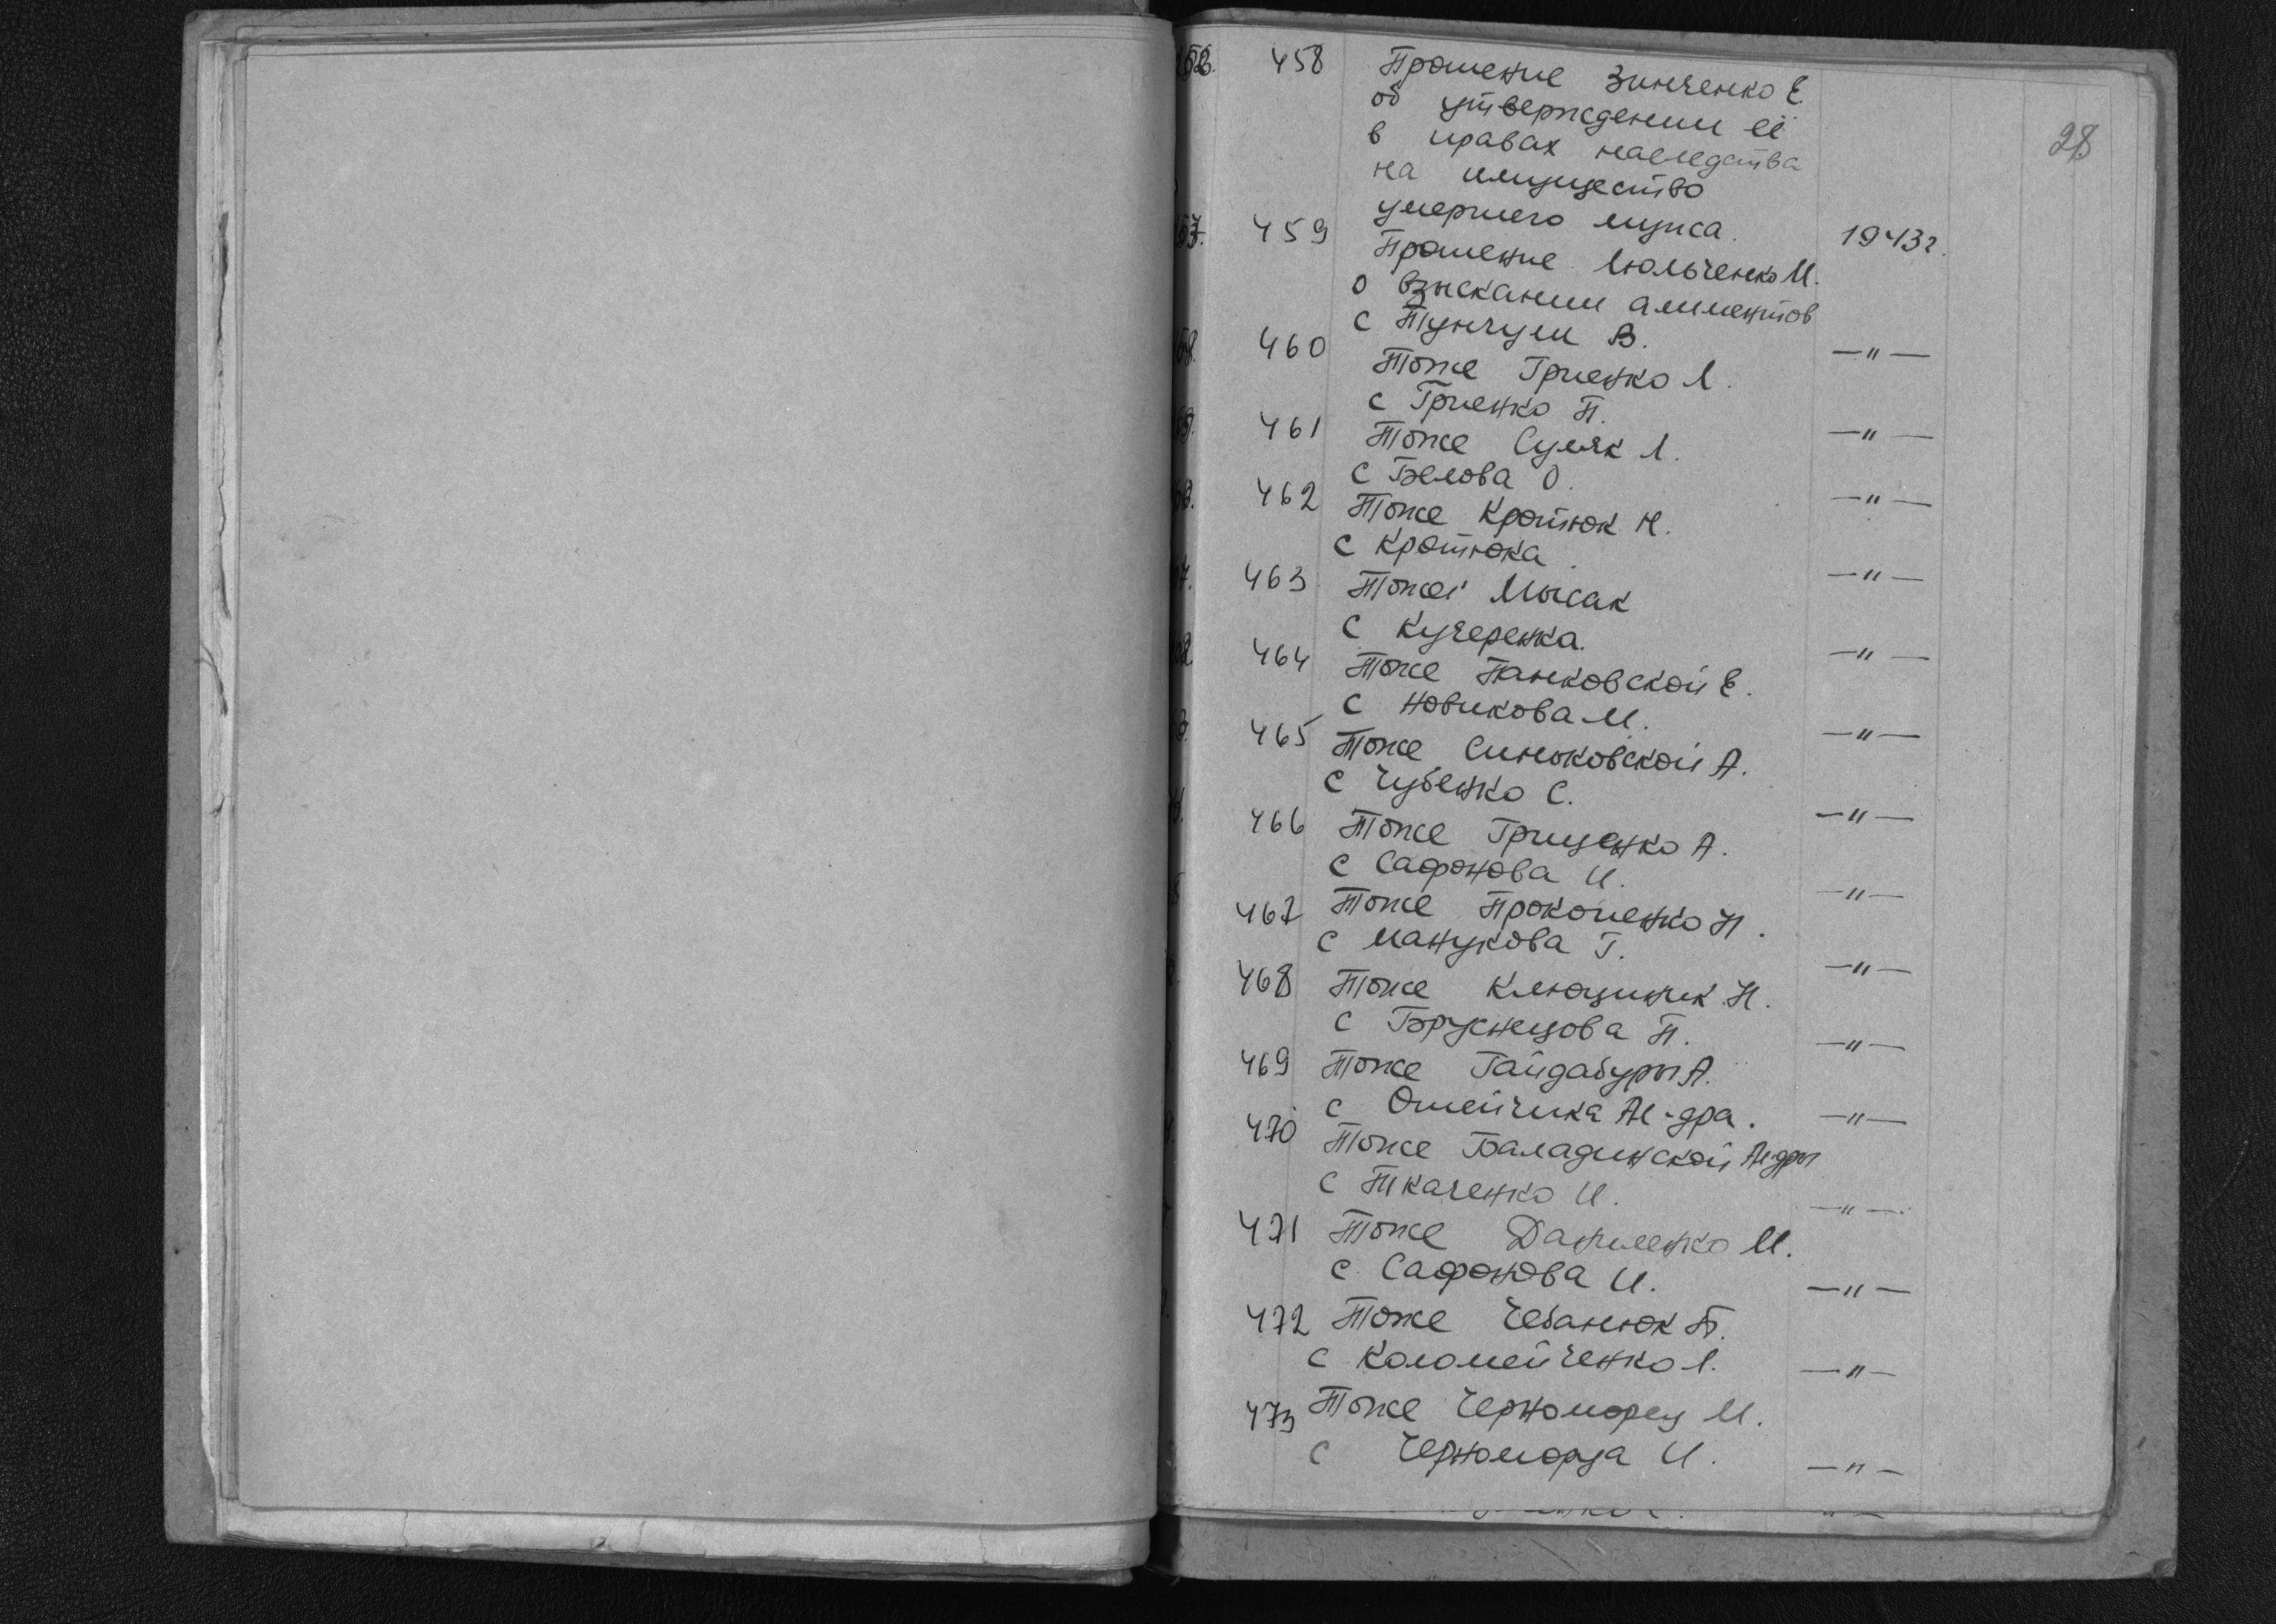 28
458 Прошение Зинченко Е.
об утверждении её
в правах наследства
на имущество
умершего мужа. 1943г.
459 Прошение Люльченко М.
о взыскании алиментов
с Тунгул В. —"—
460 Тоже Гриенко Л.
с Гриенко П. —"—
461 Тоже Суляк Л.
с Белова О. —"—
462 Тоже Кротюк Н.
с Кротюка —"—
463 Тоже Мысак
с Кучеренка. —"—
464 Тоже Панковской Е.
с Новикова М. —"—
465 Тоже Синьковской А.
с Чубенко С. —"—
466 Тоже Грищенко А.
с Сафонова И. —"—
467 Тоже Прокопенко Н.
с Манукова Г. —"—
468 Тоже Ключник Н.
с Брузнецова П. —"—
469 Тоже Гайдабуры А.
с Олейчика Ал-дра. —"—
470 Тоже Баладинской Ал-дры
с Ткаченко И. —"—
471 Тоже Даниленко М.
с Сафонова И. —"—
472 Тоже Чебанюк П.
с Коломейченко Л. —"—
473 Тоже Черноморец М.
с Черноморца И. —"—